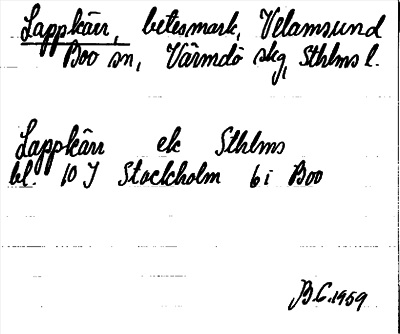 Lappkärr, betesmark, Velamsund
Boo sn, Värmdö skg, Sthlms l.
Lappkärr ek Sthlms
bl. 10 J Stockholm 6 i Boo
B.C. 1959